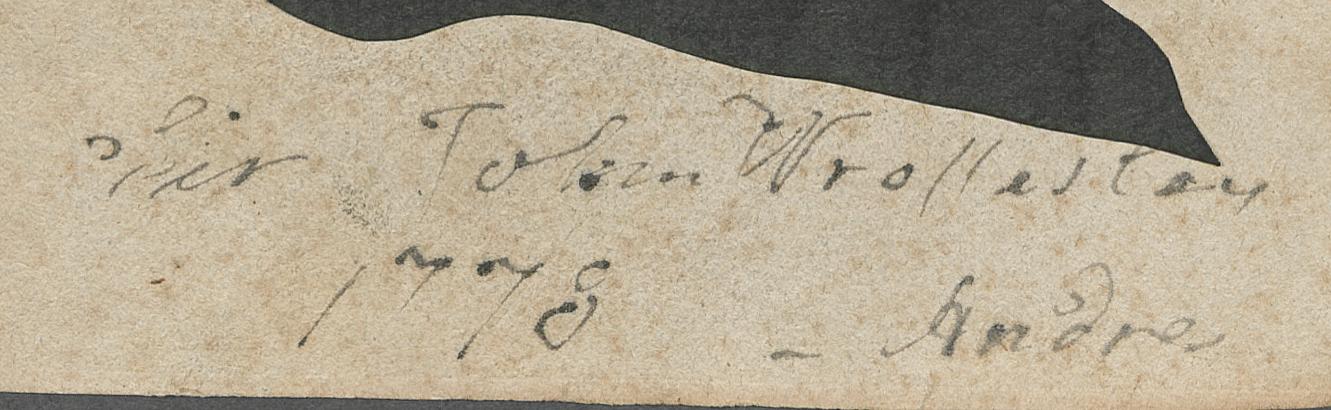 Sir John Wrollesley
1778
- Andre